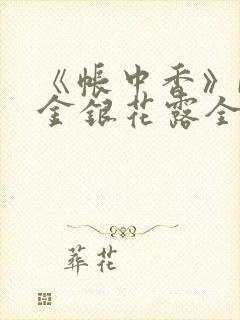 《帐中香》
金银花露全
葬花